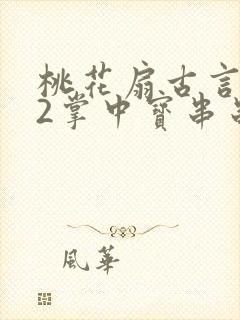 桃花扇古言
2掌中寶串
風華